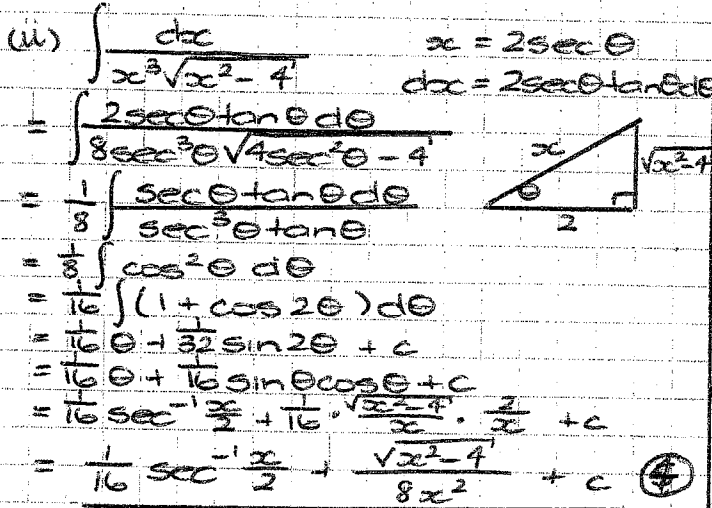 (ii) ∫ dx / (x³√(x² - 4))    x = 2secθ
dx = 2secθtanθdθ
= ∫ 2secθtanθdθ / (8sec³θ√(4sec²θ - 4))
x √(x²-4) θ 2
= 1/8 ∫ secθtanθdθ / (sec³θtanθ)
= 1/8 ∫ cos²θ dθ
= 1/16 ∫(1 + cos2θ)dθ
= 1/16 θ + 1/32 sin2θ + c
= 1/16 θ + 1/16 sinθcosθ + c
= 1/16 sec⁻¹ x/2 + 1/16 · √(x²-4)/x · 2/x + c
= 1/16 sec⁻¹ x/2 + √(x²-4) / (8x²) + c    ④